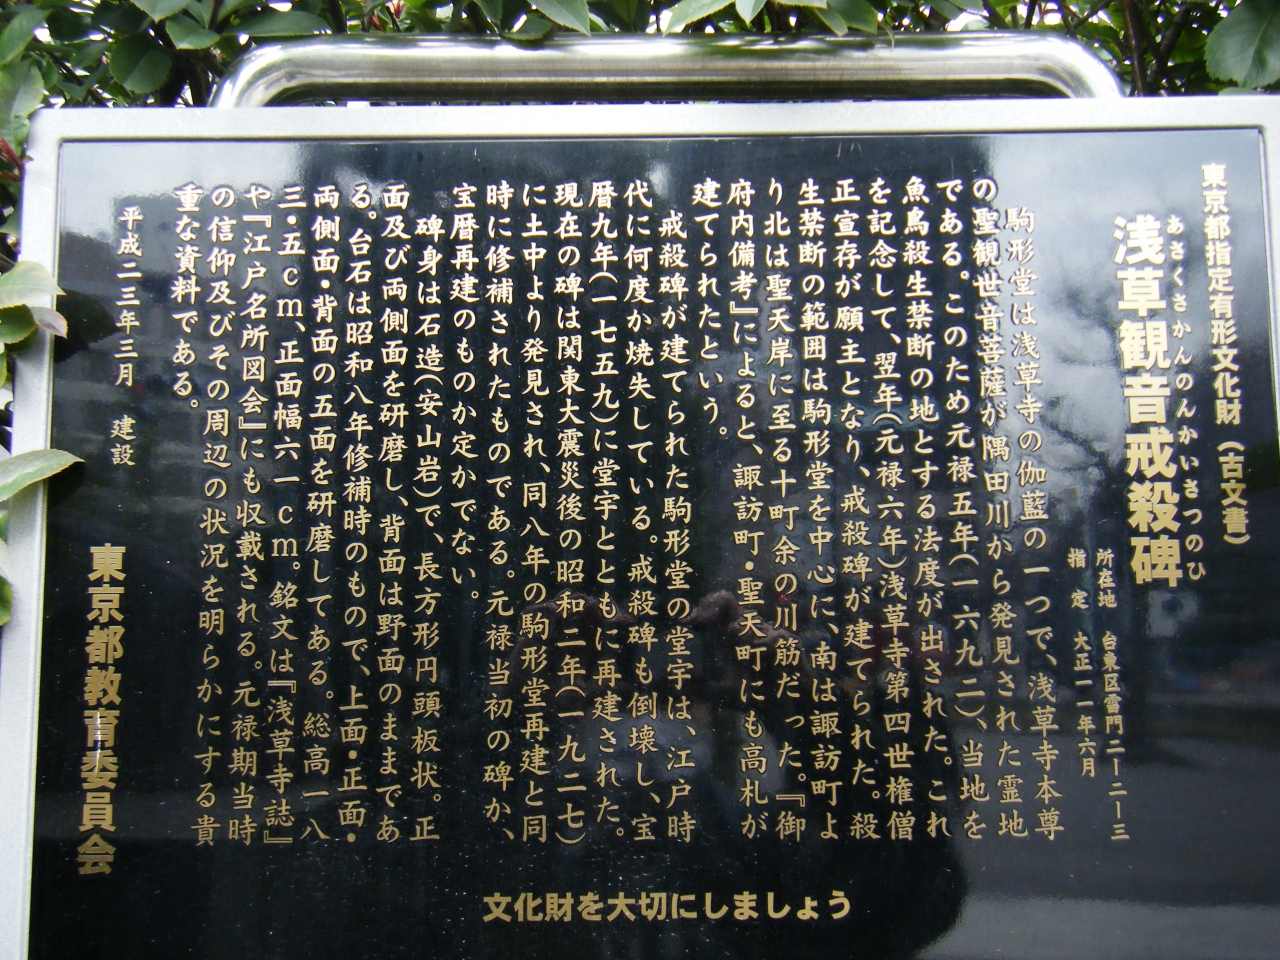 東京都指定有形文化財（古文書）
あさくさかんのんかいさつのひ
浅草観音戒殺碑
所在地 台東区雷門二ー二ー三
指 定 大正一一年六月
駒形堂は浅草寺の伽藍の一つで、浅草寺本尊
の聖観世音菩薩が隅田川から発見された霊地
である。このため元禄五年（一六九二）、当地を
魚鳥殺生禁断の地とする法度が出された。これ
を記念して、翌年（元禄六年）浅草寺第四世権僧
正宣存が願主となり、戒殺碑が建てられた。殺
生禁断の範囲は駒形堂を中心に、南は諏訪町よ
り北は聖天岸に至る十町余の川筋だった。『御
府内備考』によると、諏訪町・聖天町にも高札が
建てられたという。
戒殺碑が建てられた駒形堂の堂宇は、江戸時
代に何度か焼失している。戒殺碑も倒壊し、宝
暦九年（一七五九）に堂宇とともに再建された。
現在の碑は関東大震災後の昭和二年（一九二七）
に土中より発見され、同八年の駒形堂再建と同
時に修補されたものである。元禄当初の碑か、
宝暦再建のものか定かでない。
碑身は石造（安山岩）で、長方形円頭板状。正
面及び両側面を研磨し、背面は野面のままであ
る。台石は昭和八年修補時のもので、上面・正面・
両側面・背面の五面を研磨してある。総高一八
三・五cm、正面幅六一cm。銘文は『浅草寺誌』
や『江戸名所図会』にも収載される。元禄期当時
の信仰及びその周辺の状況を明らかにする貴
重な資料である。
平成二三年三月 建設
東京都教育委員会
文化財を大切にしましょう